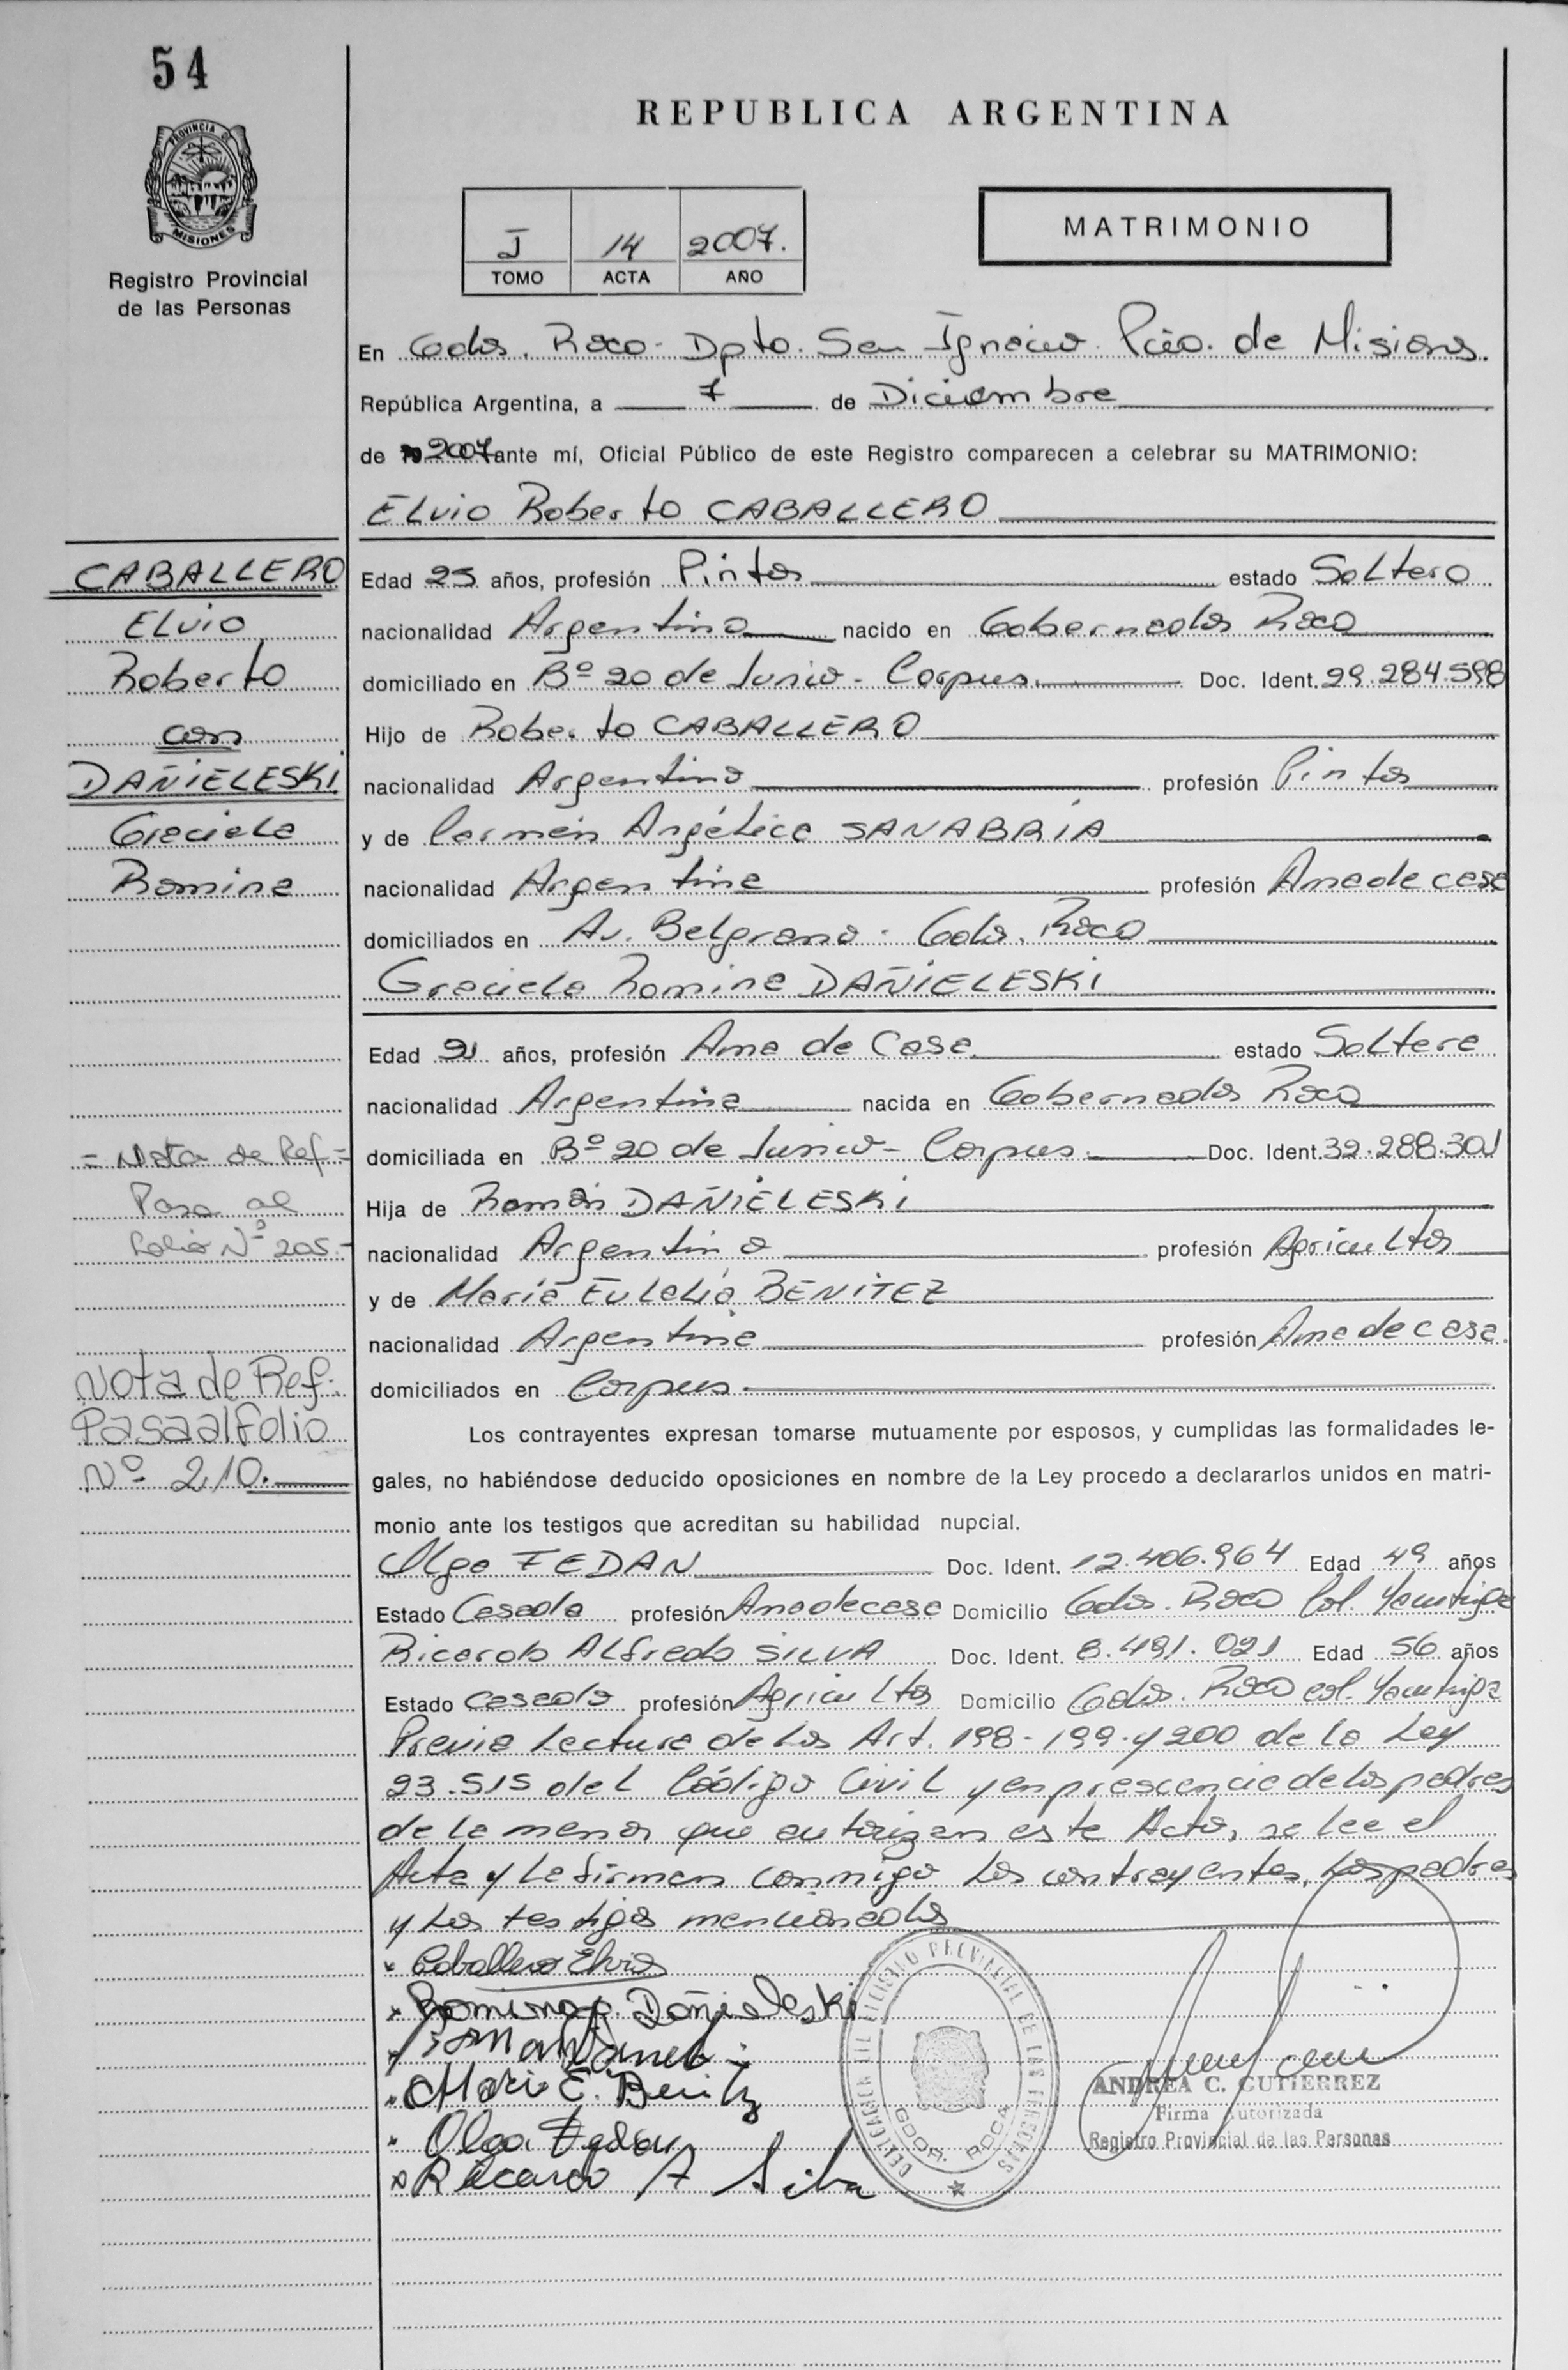 54
REPUBLICA ARGENTINA
PROVINCIA DE
MISIONES
Registro Provincial
de las Personas
I 14 2007.
TOMO ACTA AÑO
MATRIMONIO
En Gdor. Roca - Dpto. San Ignacio Pcia. de Misiones.
República Argentina, a 7 de Diciembre
de 2007 ante mí, Oficial Público de este Registro comparecen a celebrar su MATRIMONIO:
Elvio Roberto CABALLERO
CABALLERO
Elvio
Roberto
con
DAÑIELESKI
Graciela
Romina
Edad 25 años, profesión Pintor estado Soltero
nacionalidad Argentino nacido en Gobernador Roca
domiciliado en Bº 20 de Junio - Corpus. Doc. Ident. 29.284.598
Hijo de Roberto CABALLERO
nacionalidad Argentino profesión Pintor
y de Carmen Angélica SANABRIA
nacionalidad Argentina profesión Ama de casa
domiciliados en Av. Belgrano - Gdor. Roca
Graciela Romina DAÑIELESKI
Edad 21 años, profesión Ama de Casa estado Soltera
nacionalidad Argentina nacida en Gobernador Roca
domiciliada en Bº 20 de Junio - Corpus. Doc. Ident. 32.288.301
Hija de Román DAÑIELESKI
nacionalidad Argentino profesión Agricultor
y de María Eulalia BENITEZ
nacionalidad Argentina profesión Ama de casa.
domiciliados en Corpus
= Nota de Ref =
Pasa al
Folio Nº 205.-
Nota de Ref.
Pasa al folio
Nº 210.
Los contrayentes expresan tomarse mutuamente por esposos, y cumplidas las formalidades le-
gales, no habiéndose deducido oposiciones en nombre de la Ley procedo a declararlos unidos en matri-
monio ante los testigos que acreditan su habilidad nupcial.
Olga FEDAN Doc. Ident. 12.406.964 Edad 49 años
Estado Casada profesión Ama de casa Domicilio Gdor. Roca Col.
Ricardo Alfredo SILVA Doc. Ident. 8.491.021 Edad 56 años
Estado Casado profesión Agricultor Domicilio Gdor. Roca col.
Previa lectura de los Art. 198 - 199 y 200 de la Ley
23.515 del Código Civil y en prescencia de los padres
de la menor que autorizan este Acto, se lee el
Acta y la firman conmigo los contrayentes, los padres
y los testigos mencionados
x Caballero Elvio
x Romina Dañieleski
x Maria E. Benitez
x Olga Fedan
x Ricardo A Silva
DELEGACION DEL REGISTRO PROVINCIAL DE LAS PERSONAS
GDOR. ROCA
ANDREA C. GUTIERREZ
Firma Autorizada
Registro Provincial de las Personas